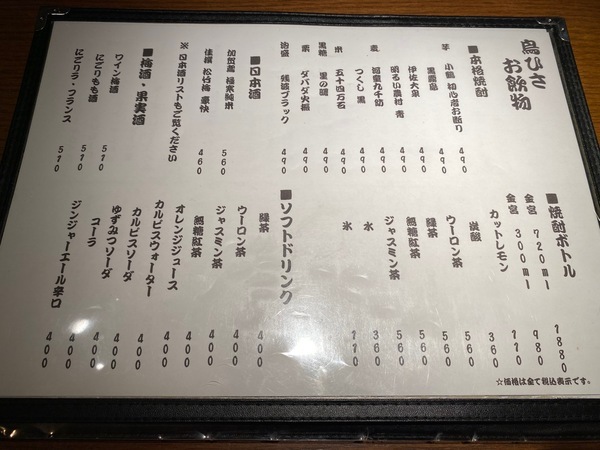 鳥ひさ
お飲物
■本格焼酎
芋 小鶴 初心者お断り 490
黒霧島 490
伊佐大泉 490
明るい農村 490
麦 河童九千坊 490
つくし 黒 490
米 五十四万石 490
黒糖 里の曙 490
栗 ダバダ火振 490
泡盛 残波ブラック 490
■日本酒
加賀鳶 極寒純米 560
佳撰 松竹梅 豪快 460
※ 日本酒リストもご覧ください
■梅酒・果実酒
ワイン梅酒 510
にごりもも酒 510
にごりラ・フランス 510
■焼酎ボトル
金宮 720ml 1880
金宮 300ml 980
カットレモン 110
炭酸 360
ウーロン茶 560
緑茶 560
無糖紅茶 560
ジャスミン茶 560
水 360
氷 110
■ソフトドリンク
緑茶 400
ウーロン茶 400
ジャスミン茶 400
無糖紅茶 400
オレンジジュース 400
カルピスウォーター 400
カルピスソーダ 400
ゆずみつソーダ 400
コーラ 400
ジンジャーエール辛口 400
☆価格は全て税込表示です。